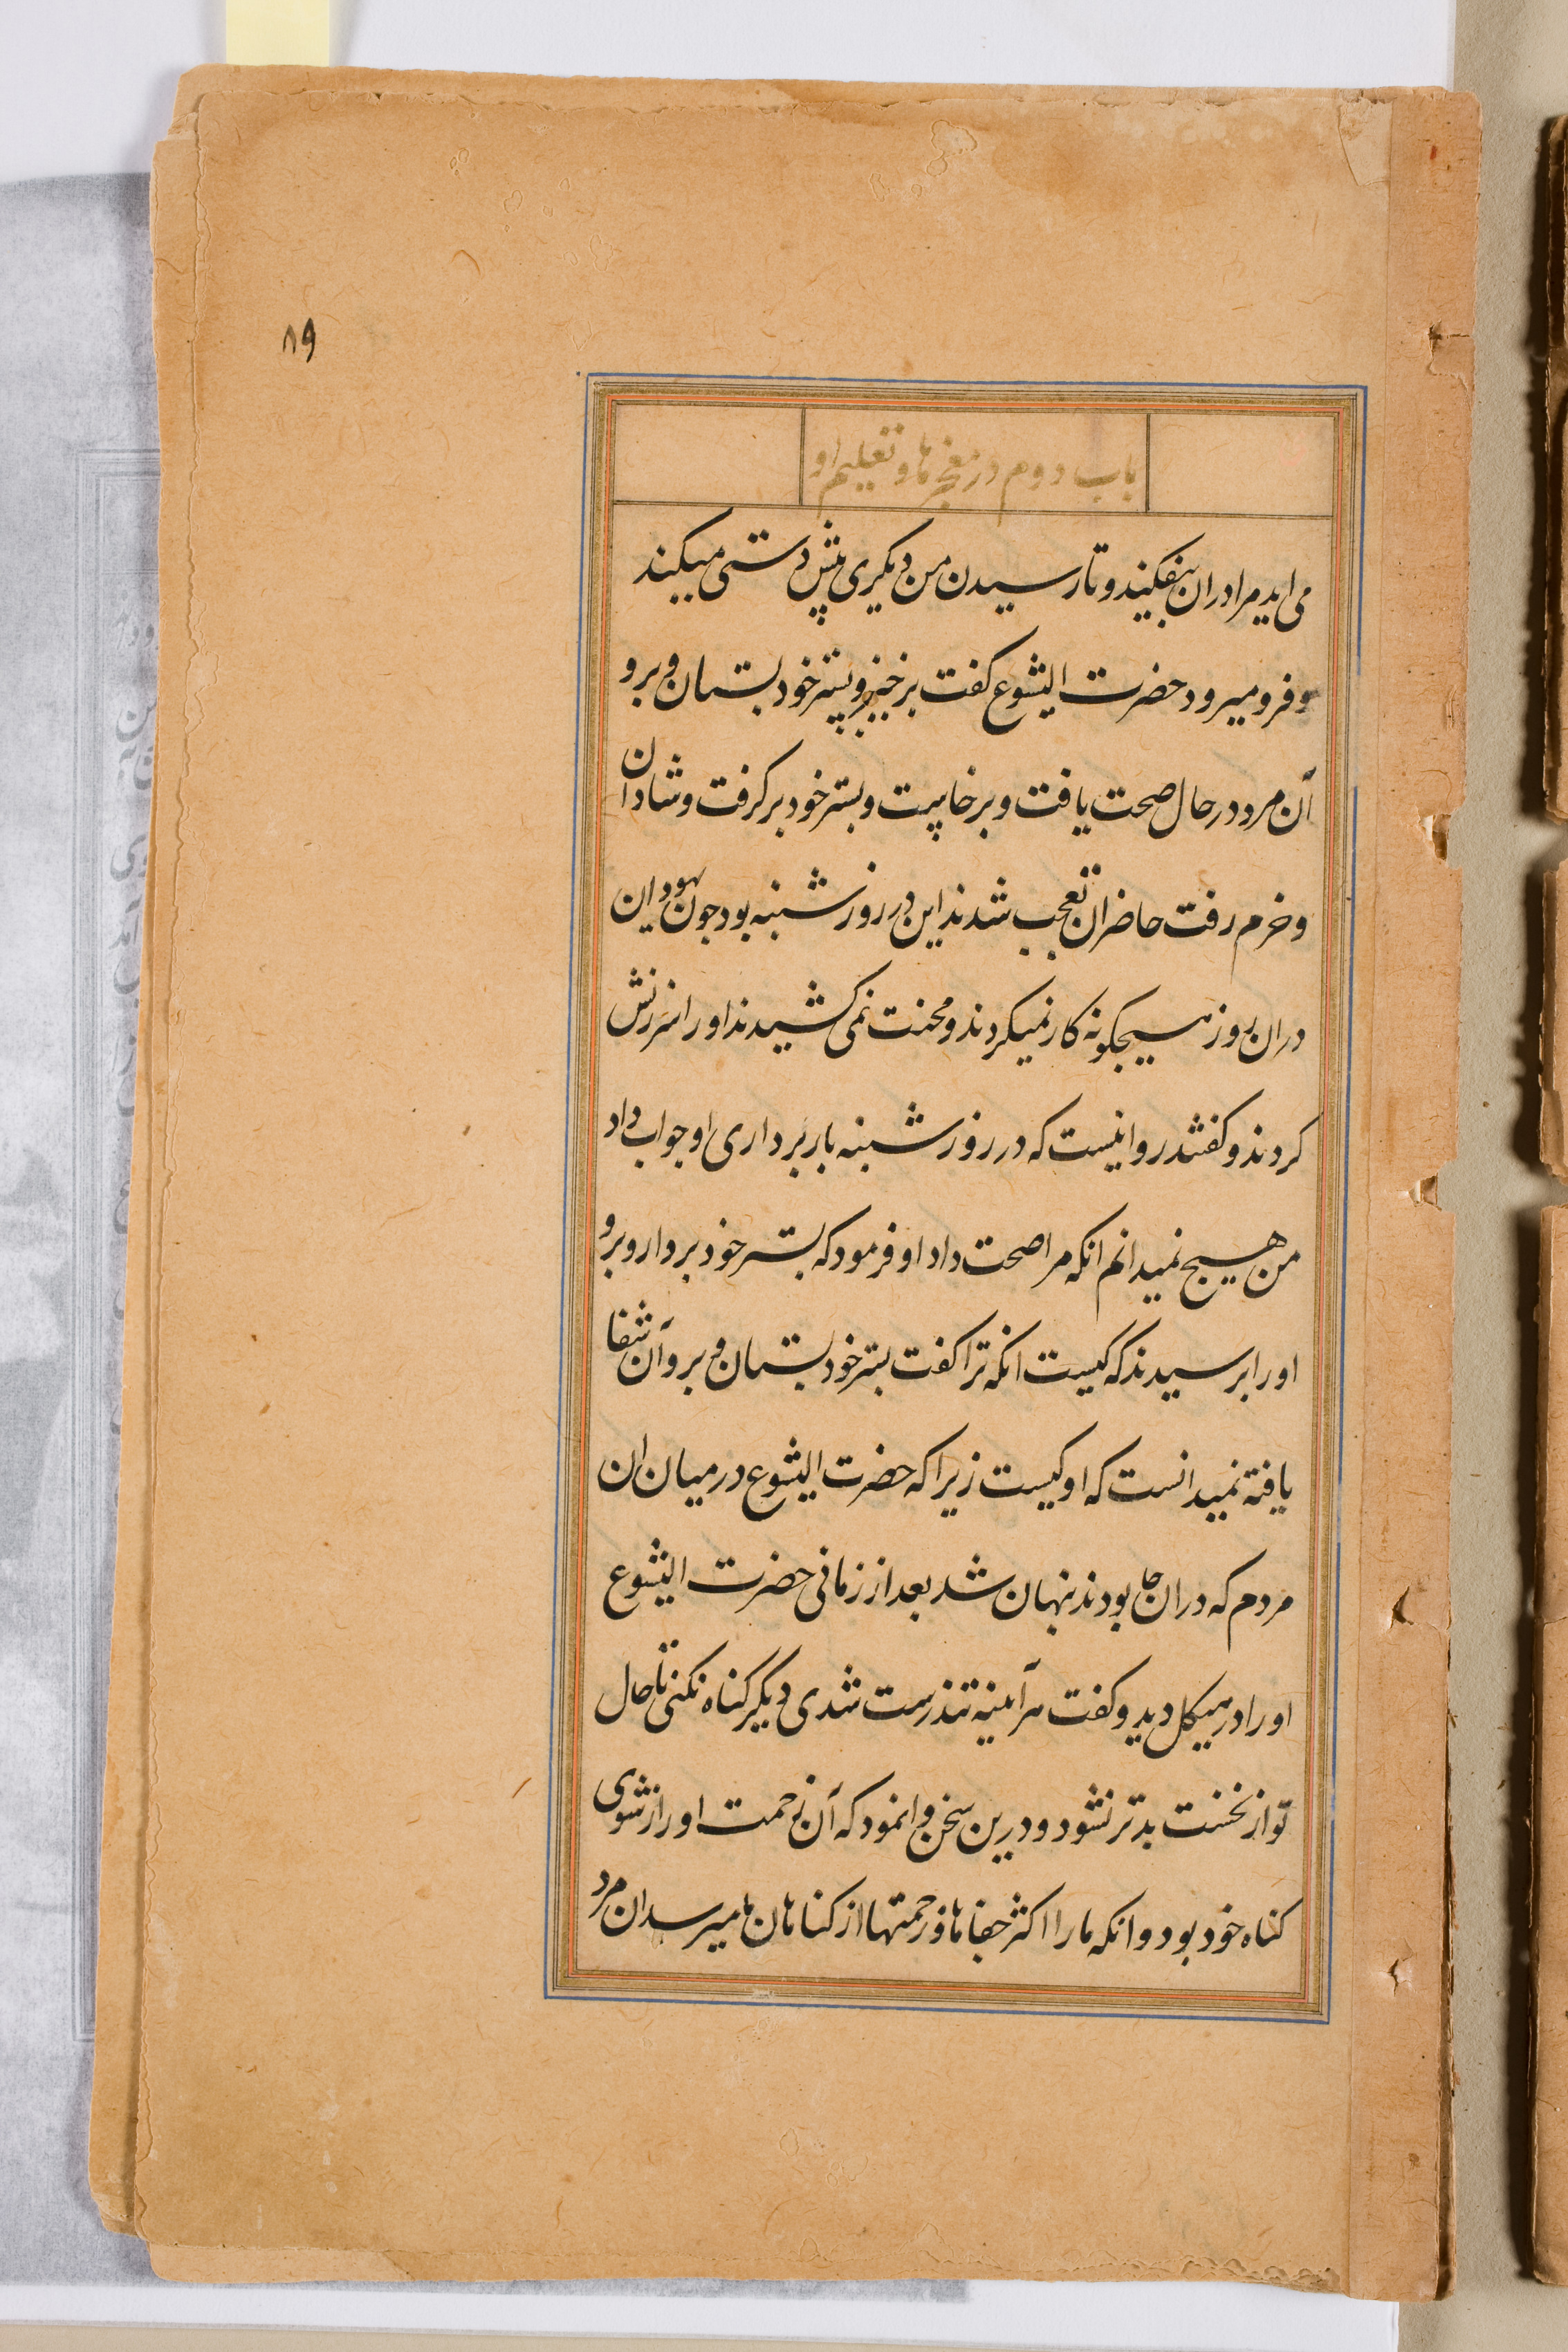 ۸۹
باب دوم در معجزها و تعلیم او
می اید مرا دران بیفکیند و تا رسیدن من دیکری پیش دستی میکیند
و فرو میرود حضرت الیشوع کفت برخیز و بستر خود بستان و برو
آن مرد در حال صحت یافت و برخاست و بستر خود بر کرفت و شادان
و خرم رفت حاضران تعجب شدند این در روز شنبه بود جون یهودیان
دران روز هیچکونه کار نمیکردند و محنت نمی کشیدند او را سرزنش
کردند و کفتند روا نیست که در روز شنبه بار برداری او جواب داد
من هیچ نمیدانم انکه مرا صحت داد او فرمود که بستر خود بردار و برو
او را برسیدند که کیست انکه ترا کفت بستر خود بستان و برو آن شفا
یافته نمیدانست که او کیست زیرا که حضرت الیشوع در میان ان
مردم که دران جا بودند نهان شد بعد از زمانی حضرت الیشوع
او را در هیکل دید و کفت هرآینه تندرست شدی دیکر کناه نکنی تا حال
تو از نخست بدتر نشود و درین سخن وانمود که آن زحمت او را از شوی
کناه خود بود و انکه ما را اکثر جفاها و زحمتها از کناهان ما میرسد ان مرد